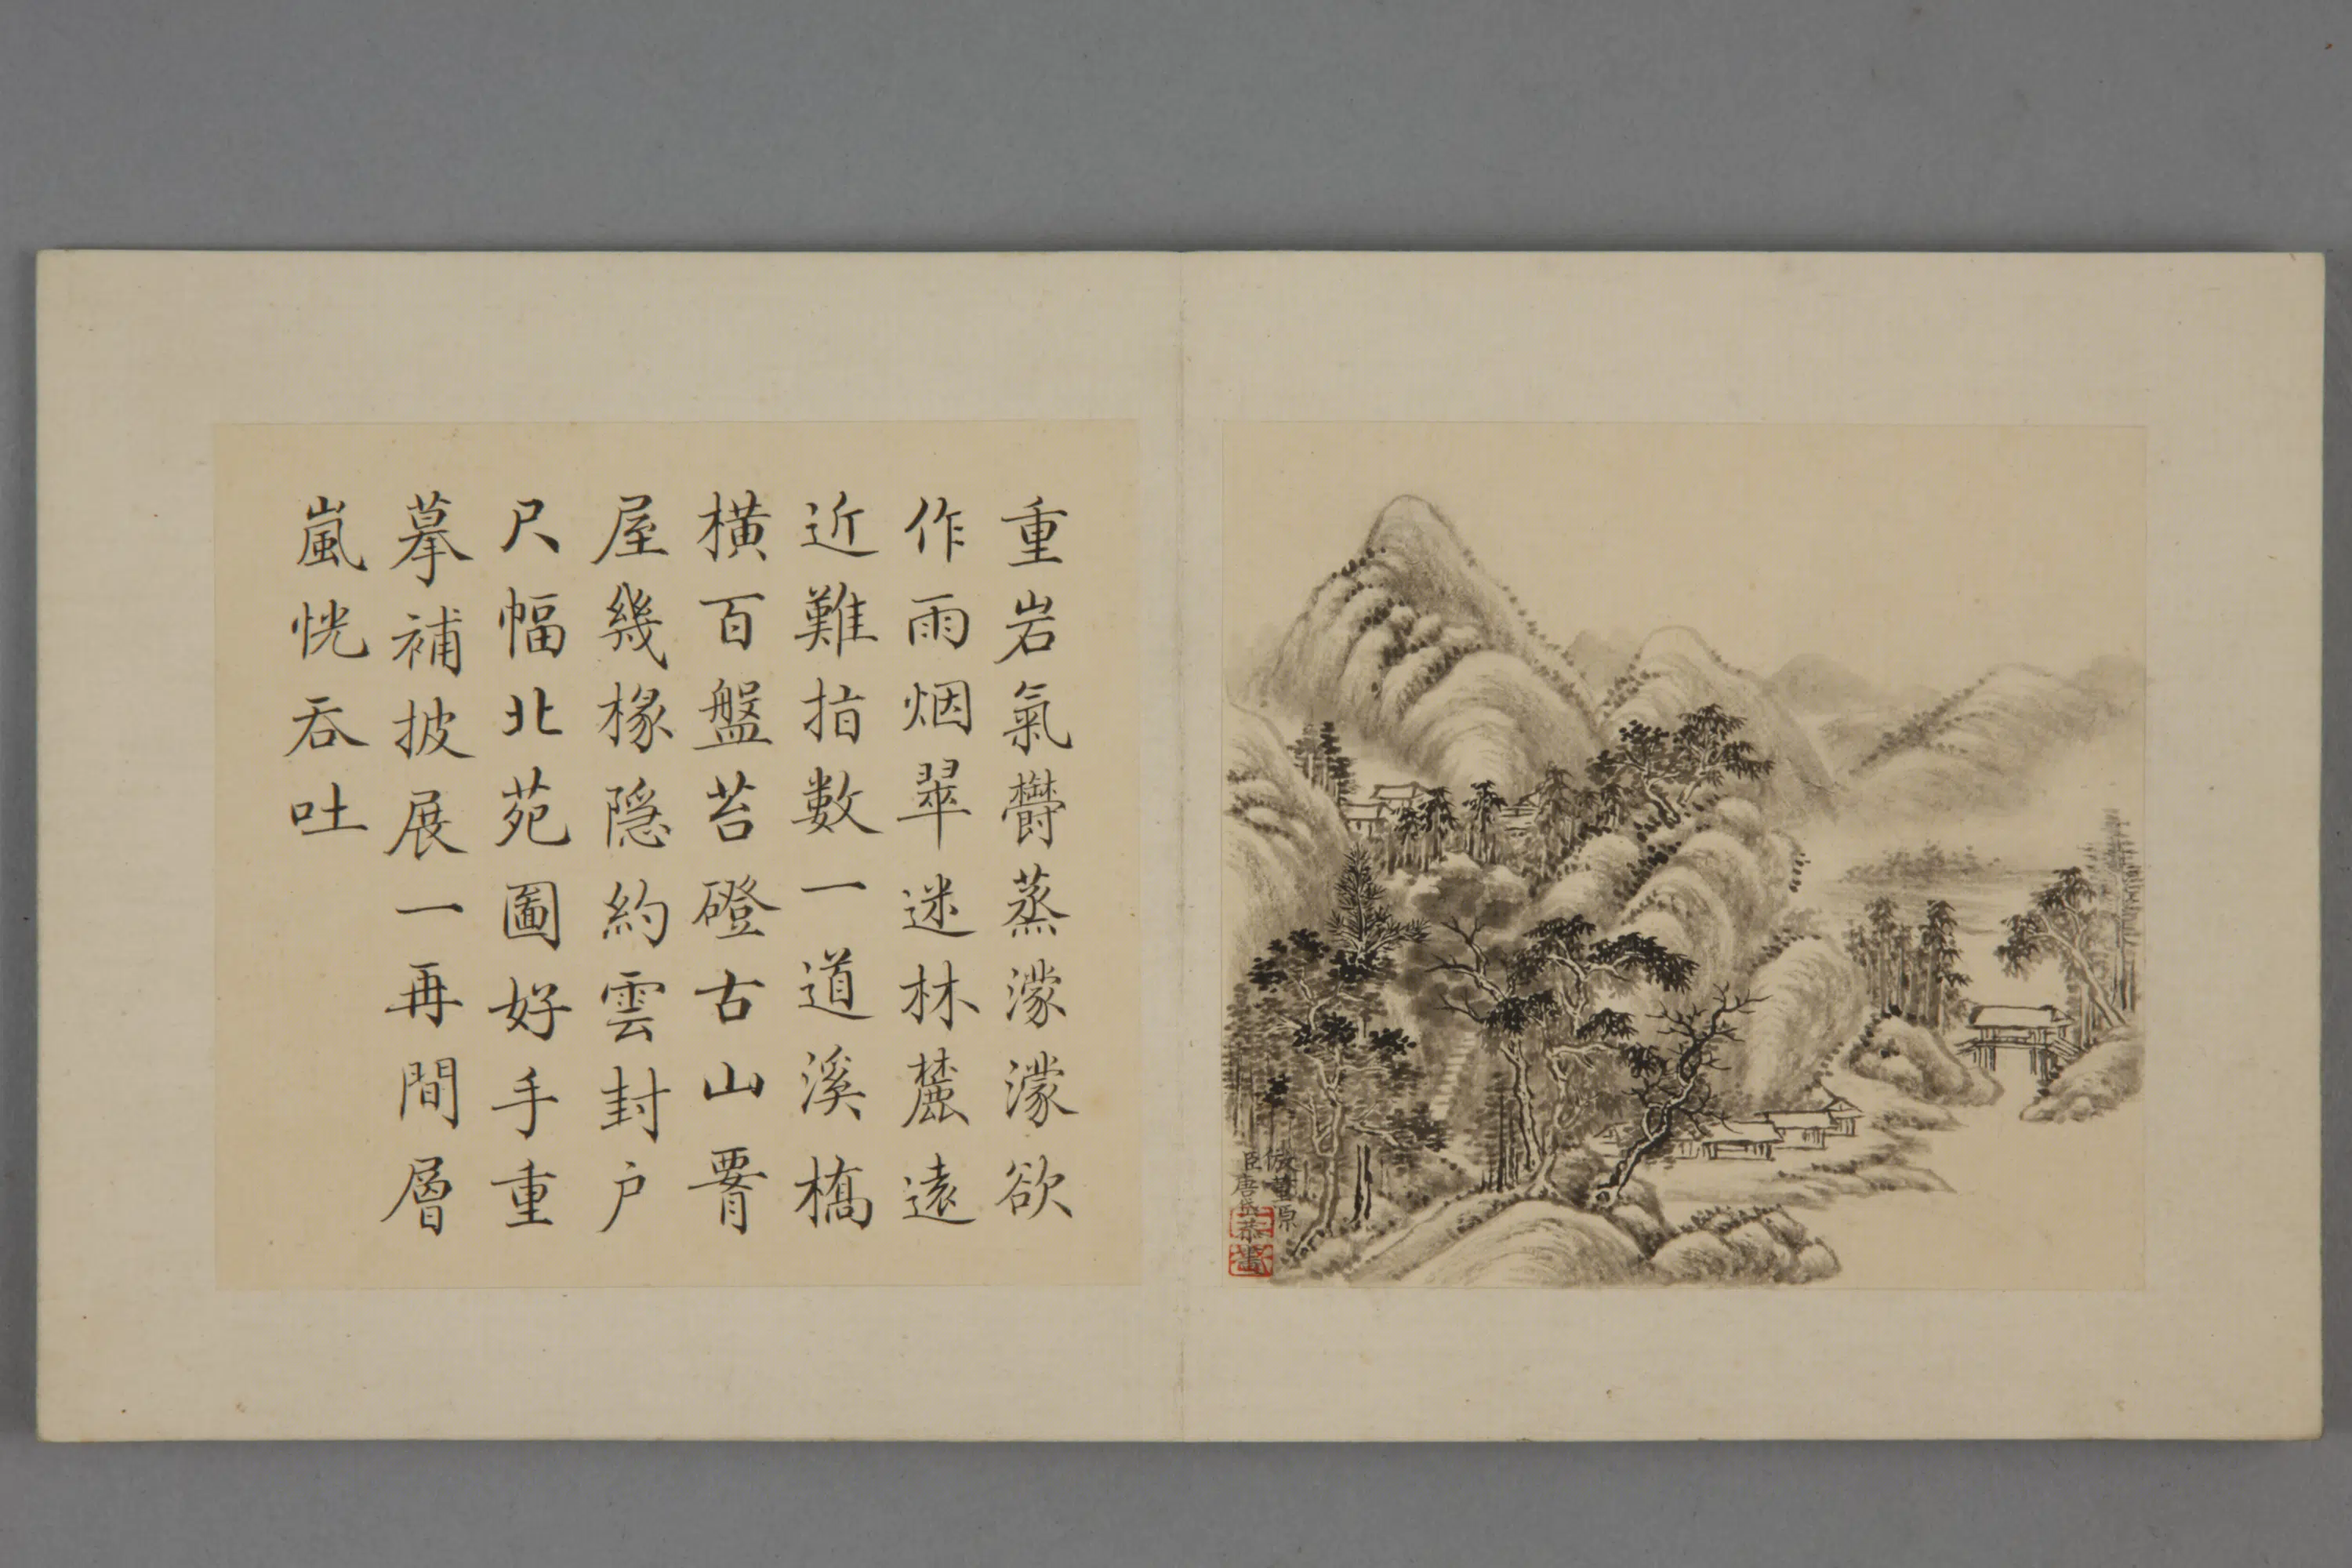 重岩氣欝蒸濛濛欲
作雨烟翠迷林麓遠
近難指數一道溪橋
橫百盤苔磴古山霤
屋幾椽隐約雲封戶
尺幅北苑圖好手重
摹補披展一再間層
嵐恍吞吐
倣董源
臣唐岱恭畫